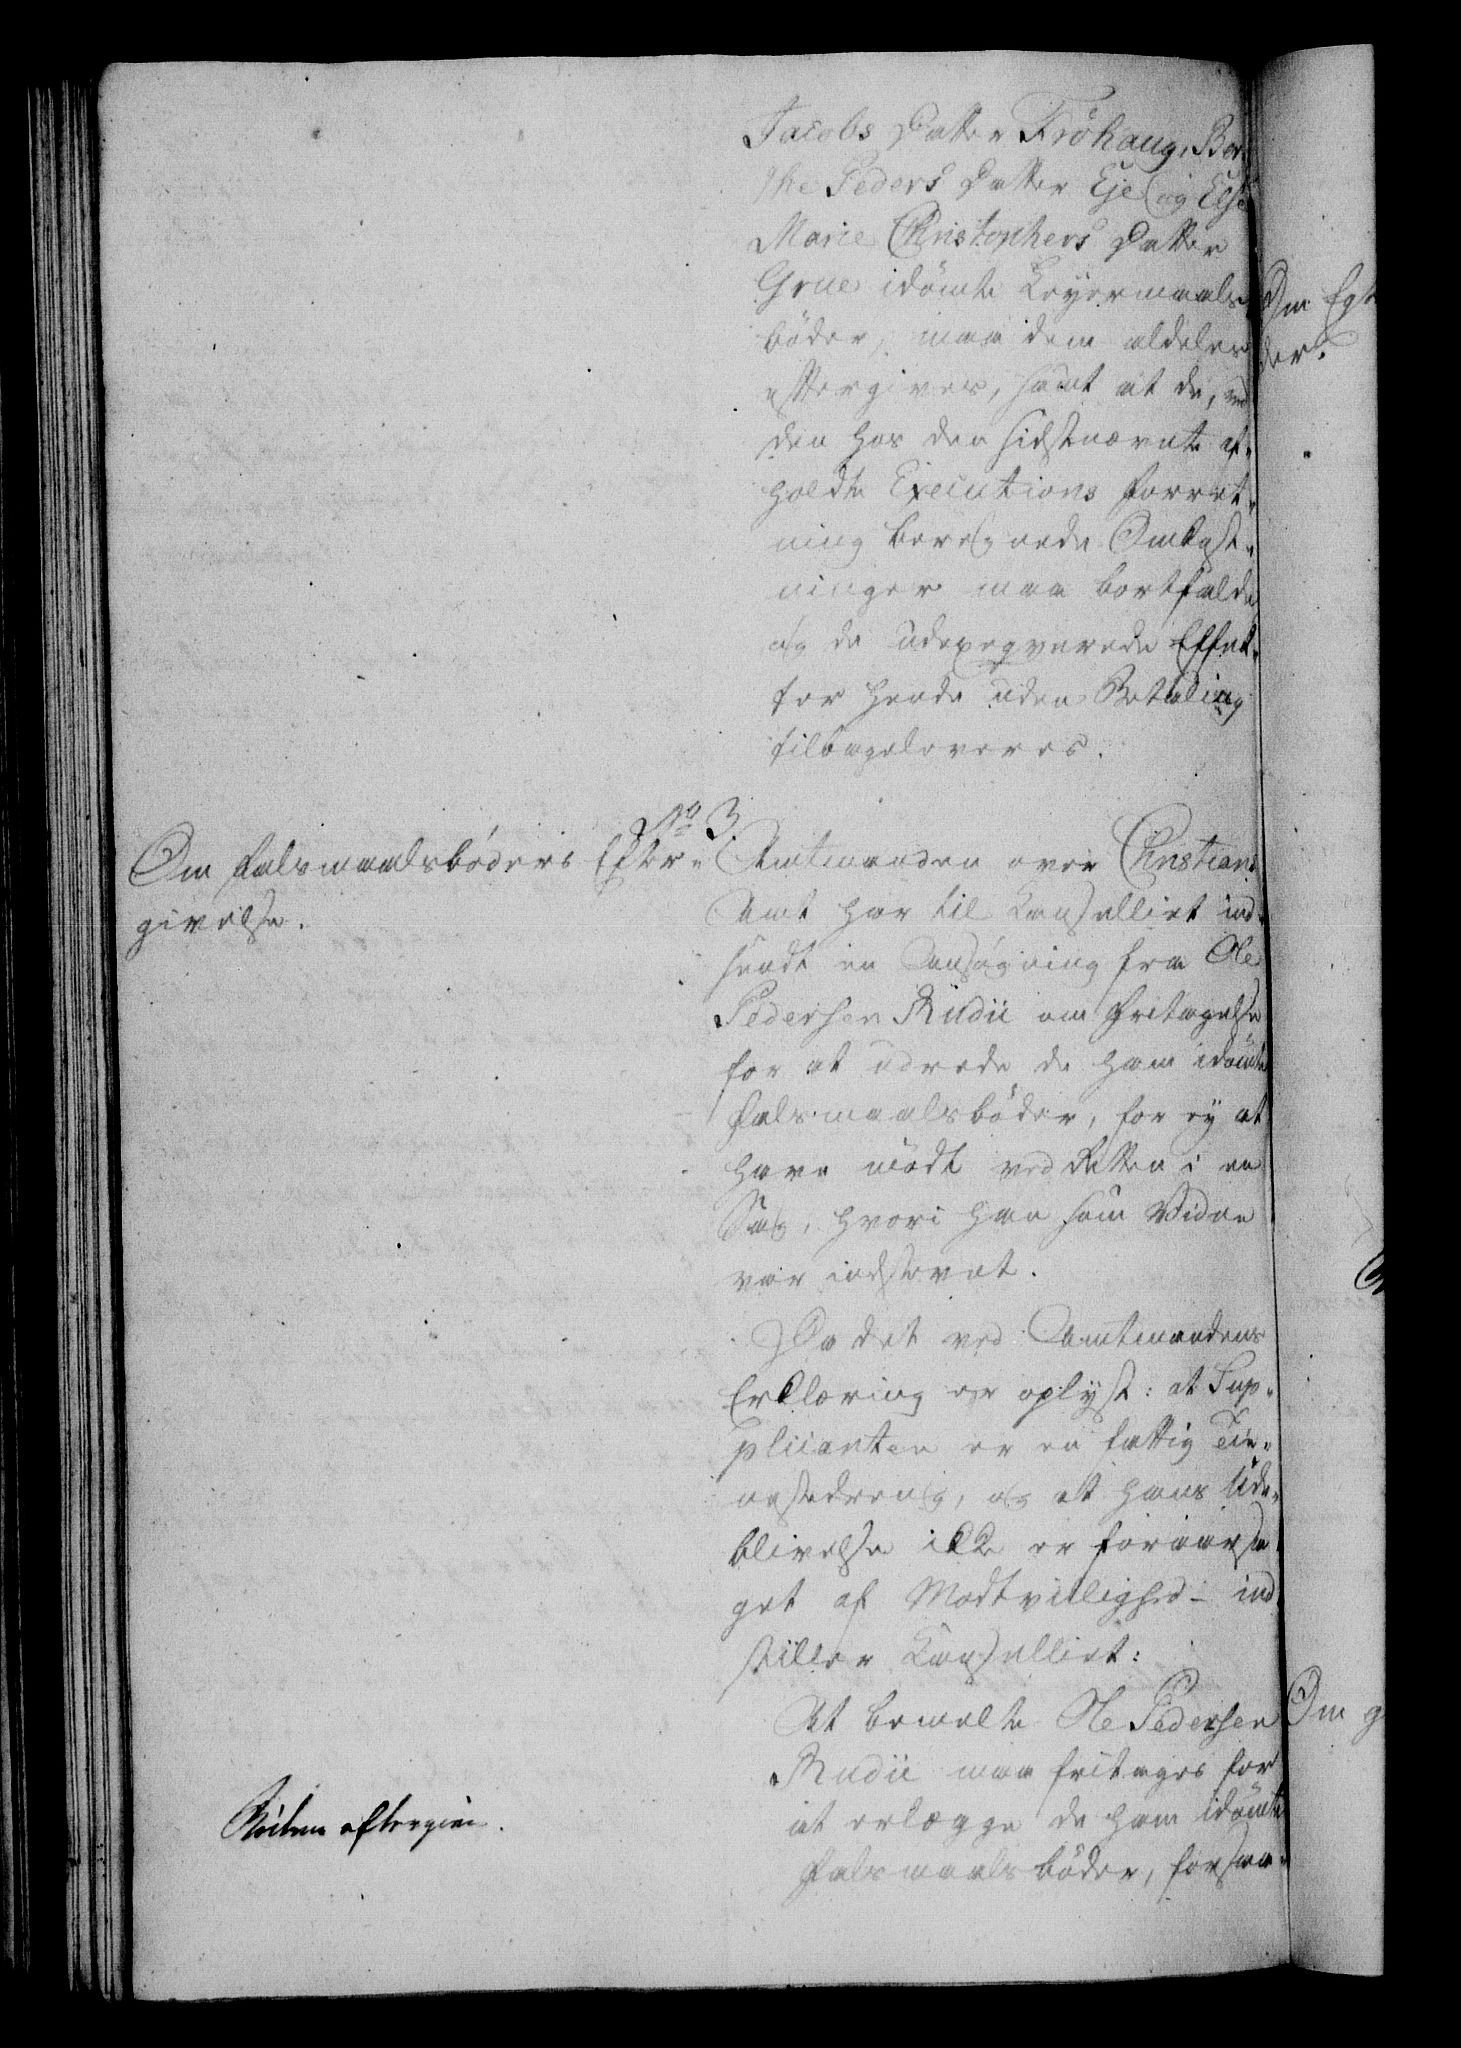 Jacobs Datter Fröhaug, Ber-
the Peders Datter Eje og Else
Marie Christophers Datter
Grue idömte Leyermaals-
böder, maa dem aldeles
eftergives, samt at de, ved
den hos den sidstnævnte af-
holdte Executions Forret-
ning beregnede Omkost-
ninger maa bortfalde
og de udexeqverede Effek-
ter hende uden Betaling
tilbageleveres.
No 3
Om Falsmaalsböders Efter-
givelse.
Amtmanden over Christians
Amt har til Kanselliet ind-
sendt en Ansögning fra Ole
Pedersen Rudii om Fritagelse
for at udrede de ham idömte
Falsmaalsböder, for ey at
have mödt ved Retten i en
Sag, hvori han som Vidne
var indstevnt.
Da det ved Amtmandens
Erklæring er oplyst: at Sup-
plicanten er en fattig Tie-
nestedreng, og at hans Ude-
blivelse ikke er foraarsa-
get af Modtvillighed - ind-
stiller Kanselliet:
At bemelte Ole Pedersen
Rudii maa fritages for
at erlægge de ham idömte
Falsmaalsböder, forsaa-
Böderne eftergives.
Om Egt
der.
Om g